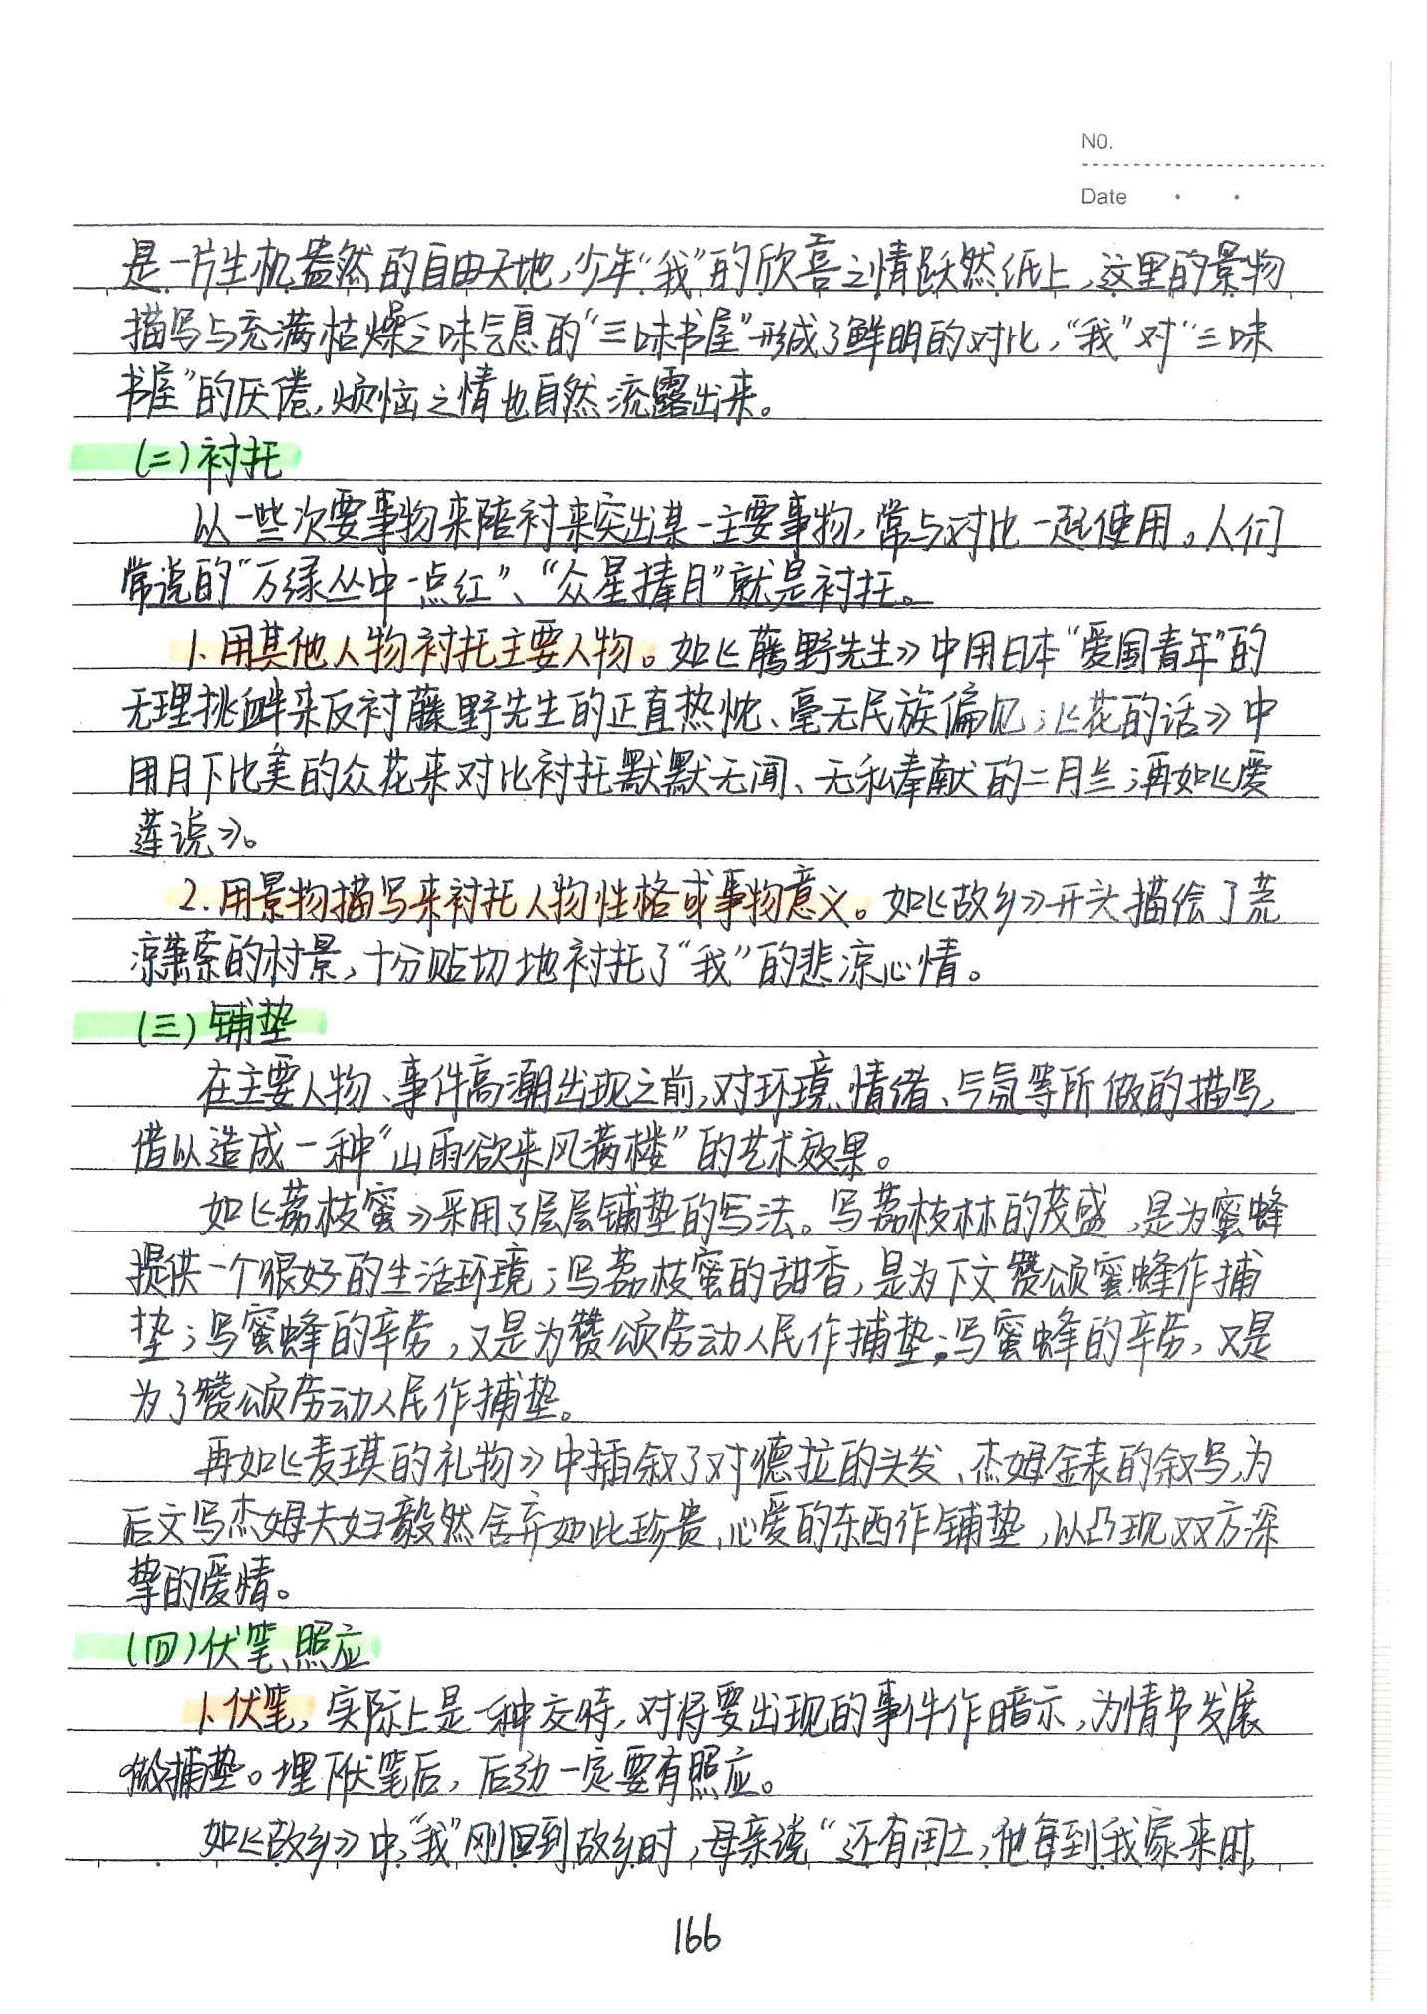 NO.
Date
是一片生机盎然的自由天地，少年“我”的欣喜之情跃然纸上，这里的景物
描写与充满枯燥乏味气息的“三味书屋”形成了鲜明的对比，“我”对“三味
书屋”的厌倦，烦恼之情也自然流露出来。
(二)衬托
以一些次要事物来陪衬来突出某一主要事物，常与对比一起使用。人们
常说的“万绿丛中一点红”、“众星捧月”就是衬托。
1. 用其他人物衬托主要人物。如《藤野先生》中用日本“爱国青年”的
无理挑衅来反衬藤野先生的正直热忱、毫无民族偏见；《花的话》中
用月下比美的众花来对比衬托默默无闻、无私奉献的二月兰；再如《爱
莲说》。
2. 用景物描写来衬托人物性格或事物意义。如《故乡》开头描绘了荒
凉萧索的村景，十分贴切地衬托了“我”的悲凉心情。
(三)铺垫
在主要人物、事件高潮出现之前，对环境、情绪、气氛等所做的描写，
借以造成一种“山雨欲来风满楼”的艺术效果。
如《荔枝蜜》采用了层层铺垫的写法。写荔枝林的茂盛，是为蜜蜂
提供一个很好的生活环境；写荔枝蜜的甜香，是为下文赞颂蜜蜂作捕
垫；写蜜蜂的辛劳，又是为赞颂劳动人民作捕垫；写蜜蜂的辛劳，又是
为了赞颂劳动人民作捕垫。
再如《麦琪的礼物》中插叙了对德拉的头发、杰姆金表的叙写，为
后文写杰姆夫妇毅然舍弃如此珍贵、心爱的东西作铺垫，以凸现双方深
挚的爱情。
(四)伏笔、照应
1. 伏笔，实际上是一种交待，对将要出现的事件作暗示，为情节发展
做捕垫。埋下伏笔后，后边一定要有照应。
如《故乡》中，“我”刚回到故乡时，母亲说“还有闰土，他每到我家来时，
166